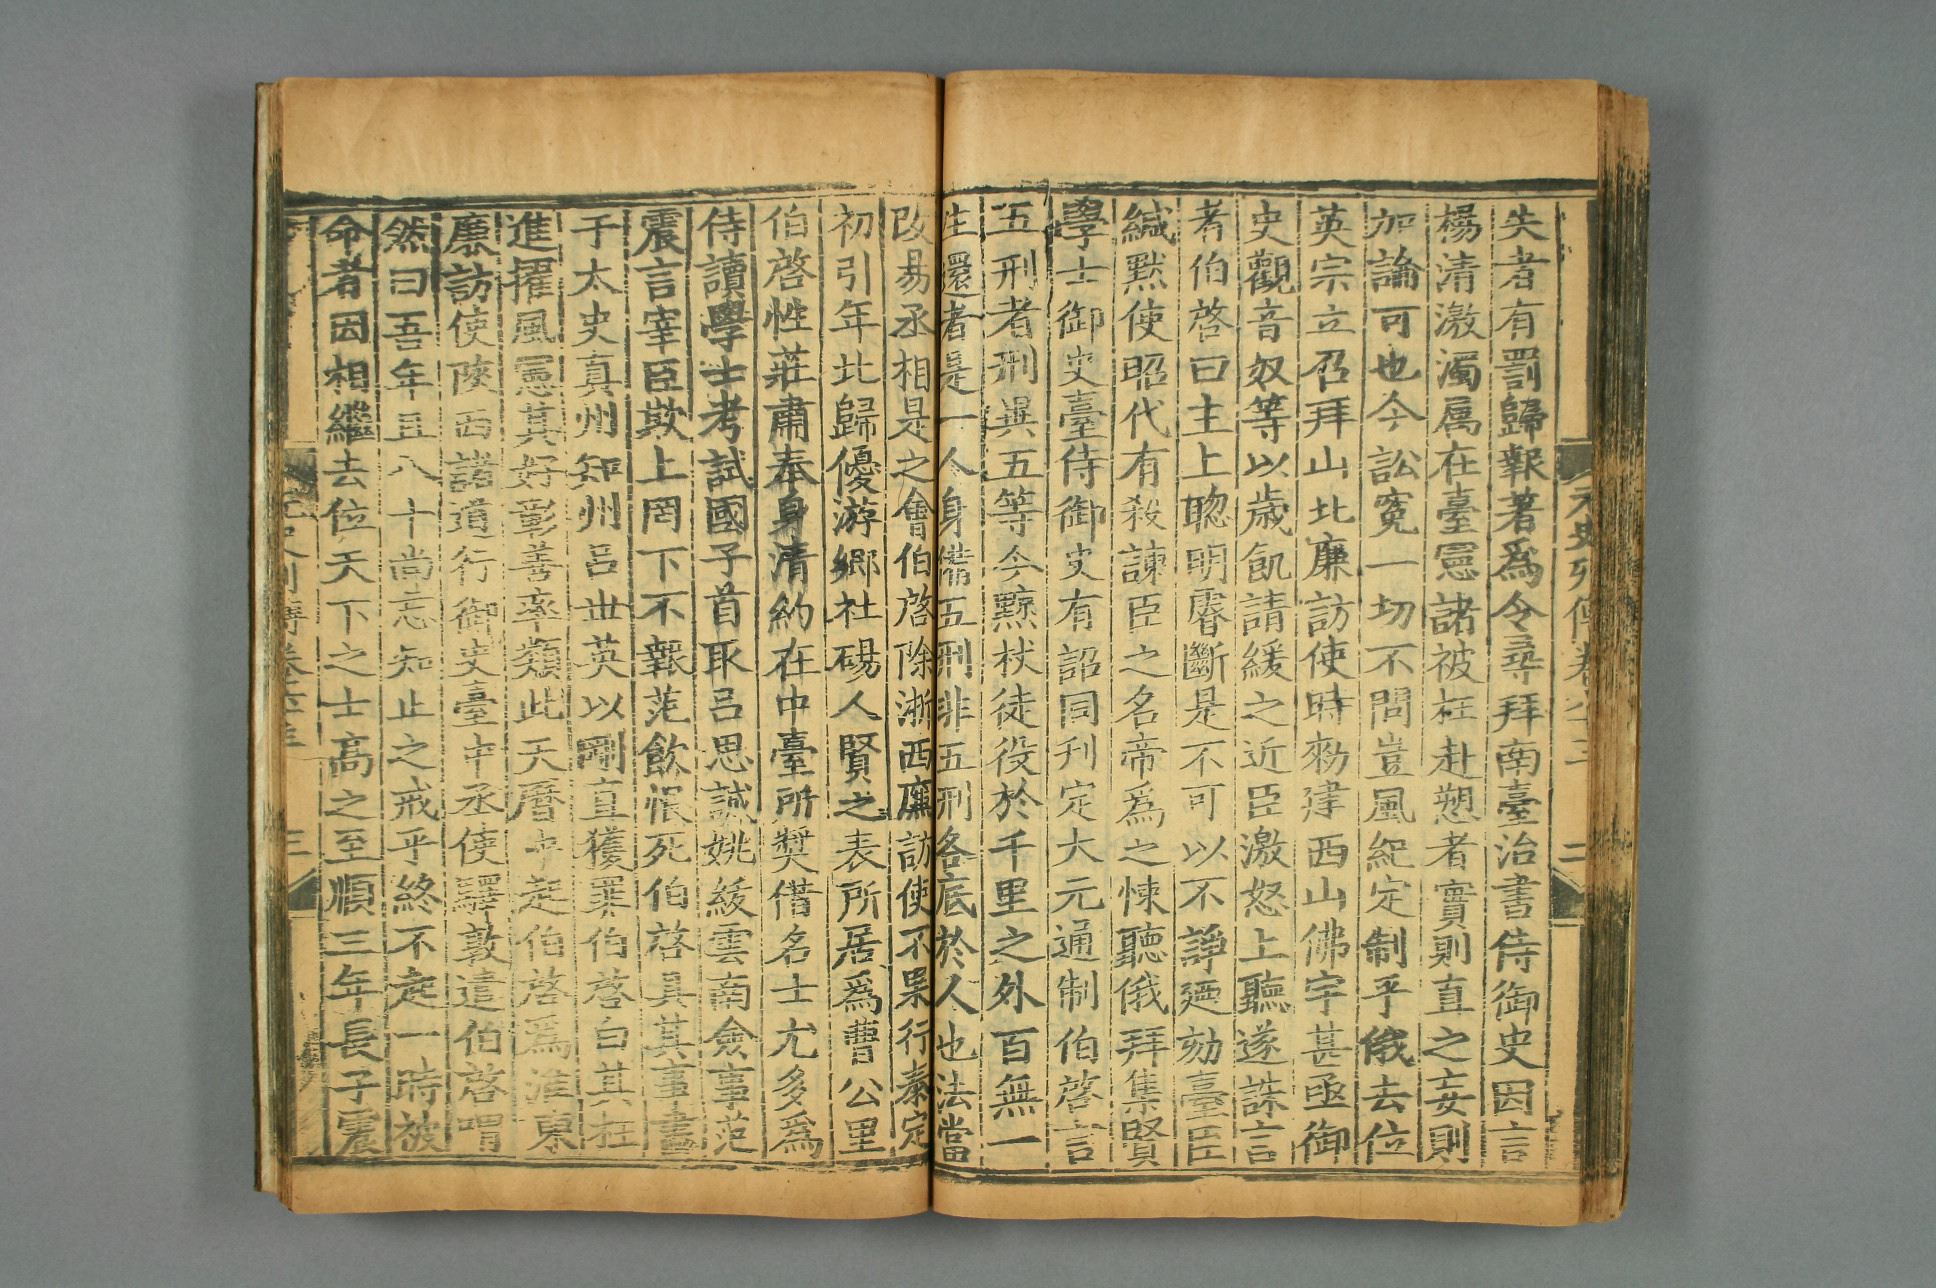 元史列傳卷六十三
二
失者有罰歸報著爲令尋拜南臺治書侍御史因言
楊清激濁属在臺憲諸被枉赴愬者實則直之妄則
加論可也今訟寃一切不問豈風紀定制乎俄去位
英宗立召拜山北廉訪使時勑建西山佛宇甚亟御
史觀音奴等以歲飢請緩之近臣激怒上聽遂誅言
者伯啓曰主上聦明睿斷是不可以不諍廼劾臺臣
緘黙使昭代有殺諫臣之名帝爲之悚聽俄拜集賢
學士御史臺侍御史有詔同刋定大元通制伯啓言
五刑者刑異五等今黥杖徒役於千里之外百無一
生還者是一人身備五刑非五刑各底於人也法當
改易丞相是之會伯啓除浙西廉訪使不果行泰定
初引年北歸優游郷社碭人賢之表所居爲曹公里
伯啓性莊肅奉身清約在中臺所奬借名士尤多爲
侍讀學士考試國子首取吕思誠姚綏雲南僉事范
震言宰臣欺上罔下不報范飮恨死伯啓具其事書
于太史真州知州吕世英以剛直獲罪伯啓白其枉
進擢風憲其好彰善率類此天曆中起伯啓爲淮東
廉訪使陜西諸道行御史臺中丞使驛敦遣伯啓喟
然曰吾年且八十尚忘知止之戒乎終不起一時被
命者因相繼去位天下之士高之至順三年長子震
三